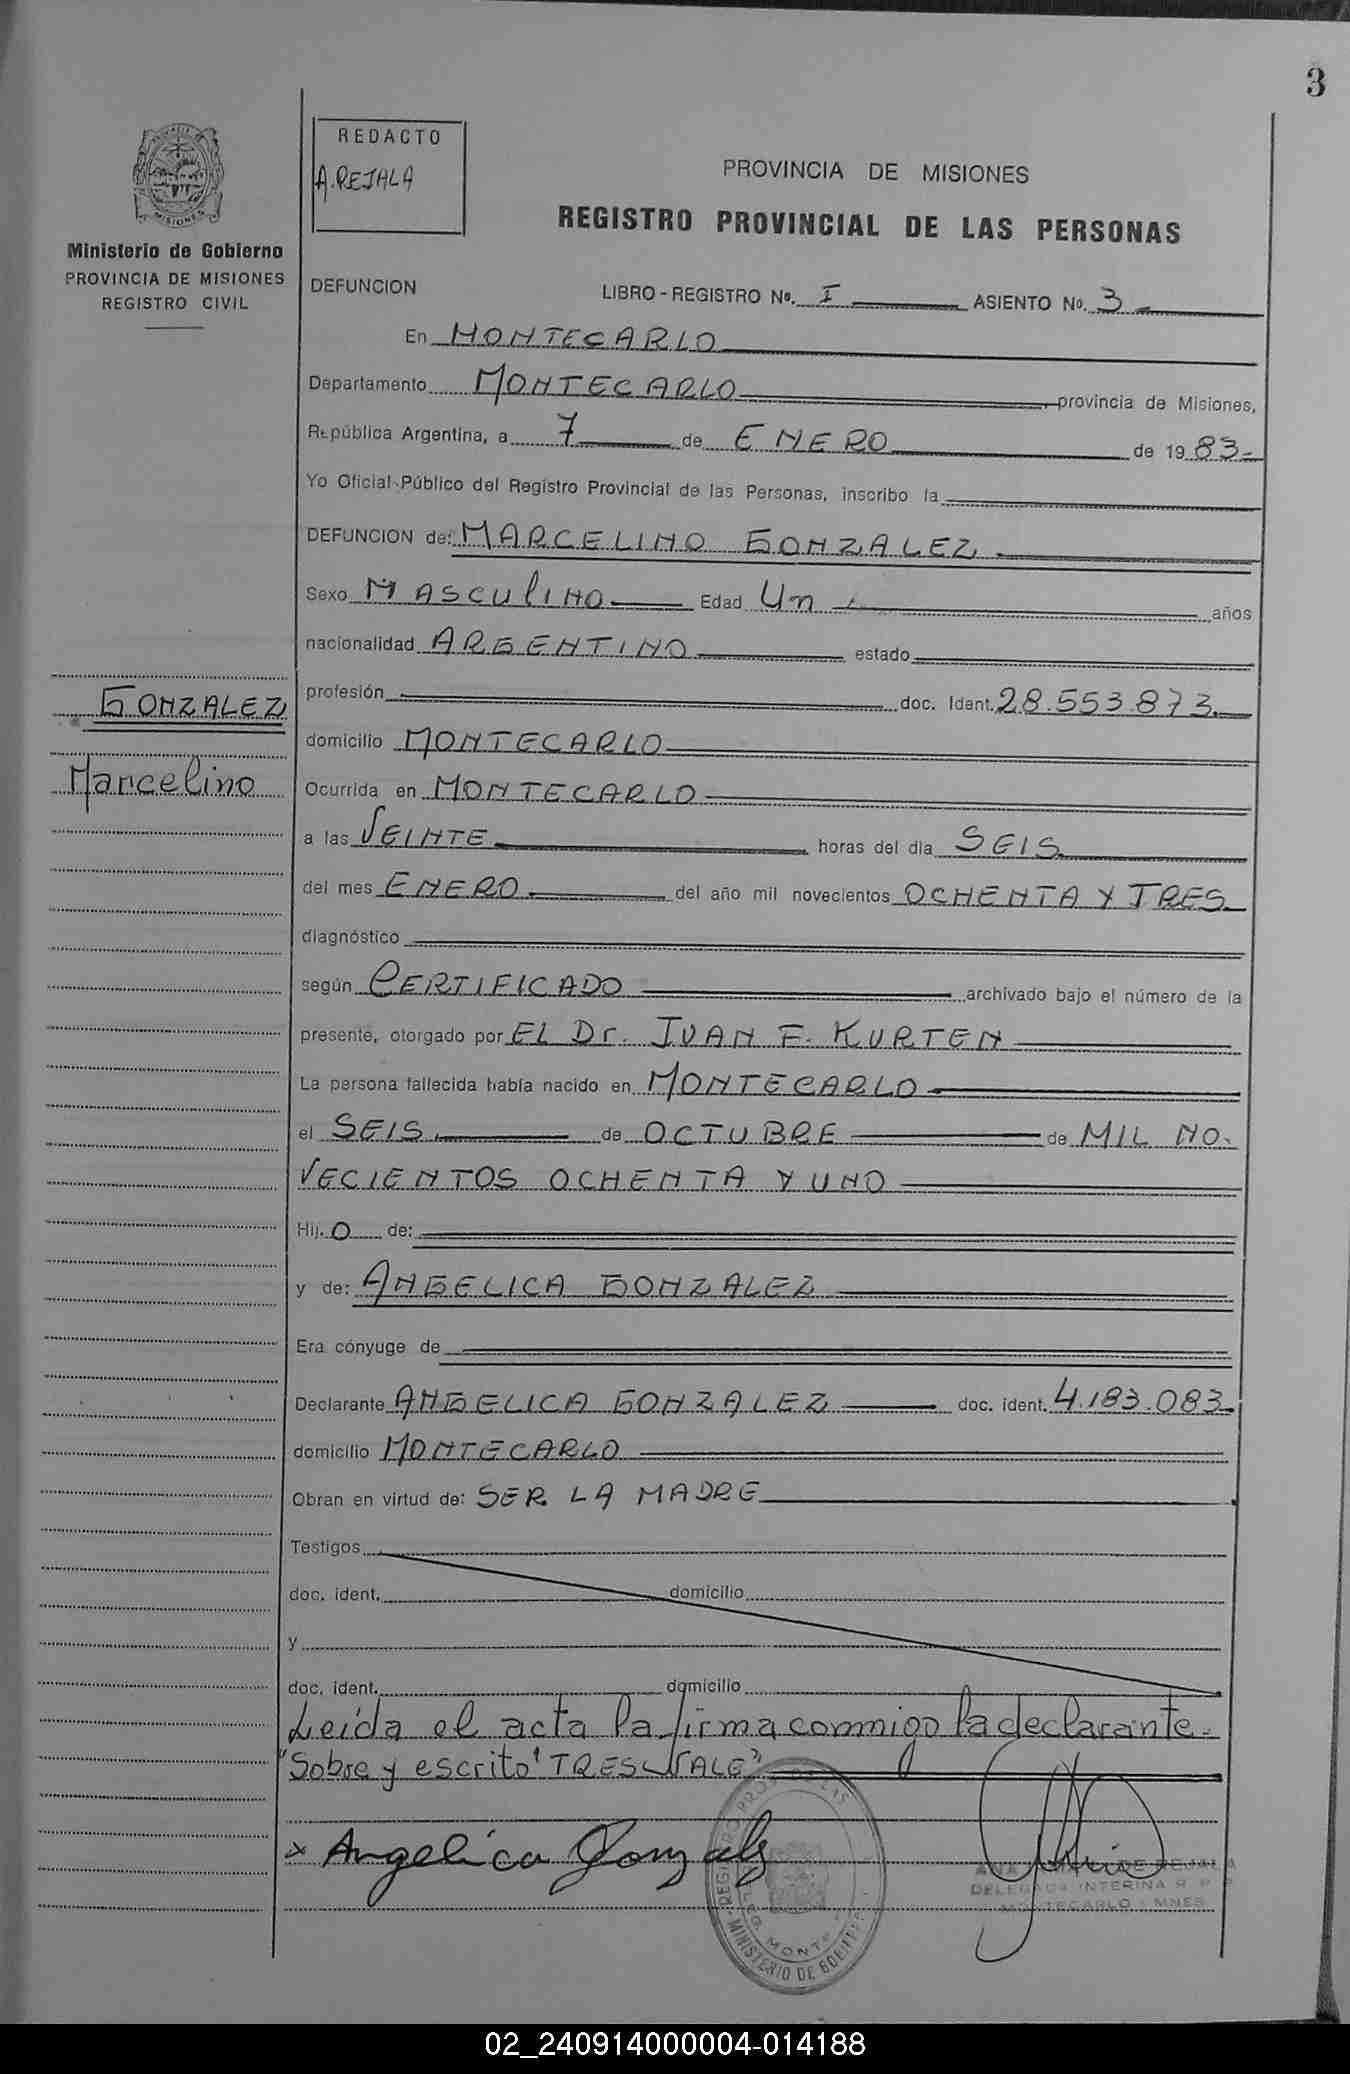 3
REDACTO
A. REJALA
MISIONES
Ministerio de Gobierno
PROVINCIA DE MISIONES
REGISTRO CIVIL
PROVINCIA DE MISIONES
REGISTRO PROVINCIAL DE LAS PERSONAS
DEFUNCION LIBRO - REGISTRO Nº. I ASIENTO Nº. 3
En MONTECARLO
Departamento MONTECARLO, provincia de Misiones,
República Argentina, a 7 de ENERO de 1983-
Yo Oficial Público del Registro Provincial de las Personas, inscribo la
DEFUNCION de: MARCELINO GONZALEZ
Sexo MASCULINO Edad Un años
nacionalidad ARGENTINO estado
profesión doc. Ident. 28.553.873
GONZALEZ
Marcelino
domicilio MONTECARLO
Ocurrida en MONTECARLO
a las VEINTE horas del día SEIS
del mes ENERO del año mil novecientos OCHENTA Y TRES
diagnóstico
según CERTIFICADO archivado bajo el número de la
presente, otorgado por EL Dr. JUAN F. KURTEN
La persona fallecida había nacido en MONTECARLO
el SEIS de OCTUBRE de MIL NO-
VECIENTOS OCHENTA Y UNO
Hij. O de:
y de: ANGELICA GONZALEZ
Era cónyuge de
Declarante ANGELICA GONZALEZ doc. ident. 4.183.083
domicilio MONTECARLO
Obran en virtud de: SER LA MADRE
Testigos
doc. ident. domicilio
y
doc. ident. domicilio
Leída el acta la firma conmigo la declarante.
"Sobre y escrito "TRES" VALE"
x Angelica Gonzalez
REGISTRO PROV. DE LAS
MINISTERIO DE
DELEGADA INTERINA R. P. P.
MONTECARLO - MNES.
02_240914000004-014188